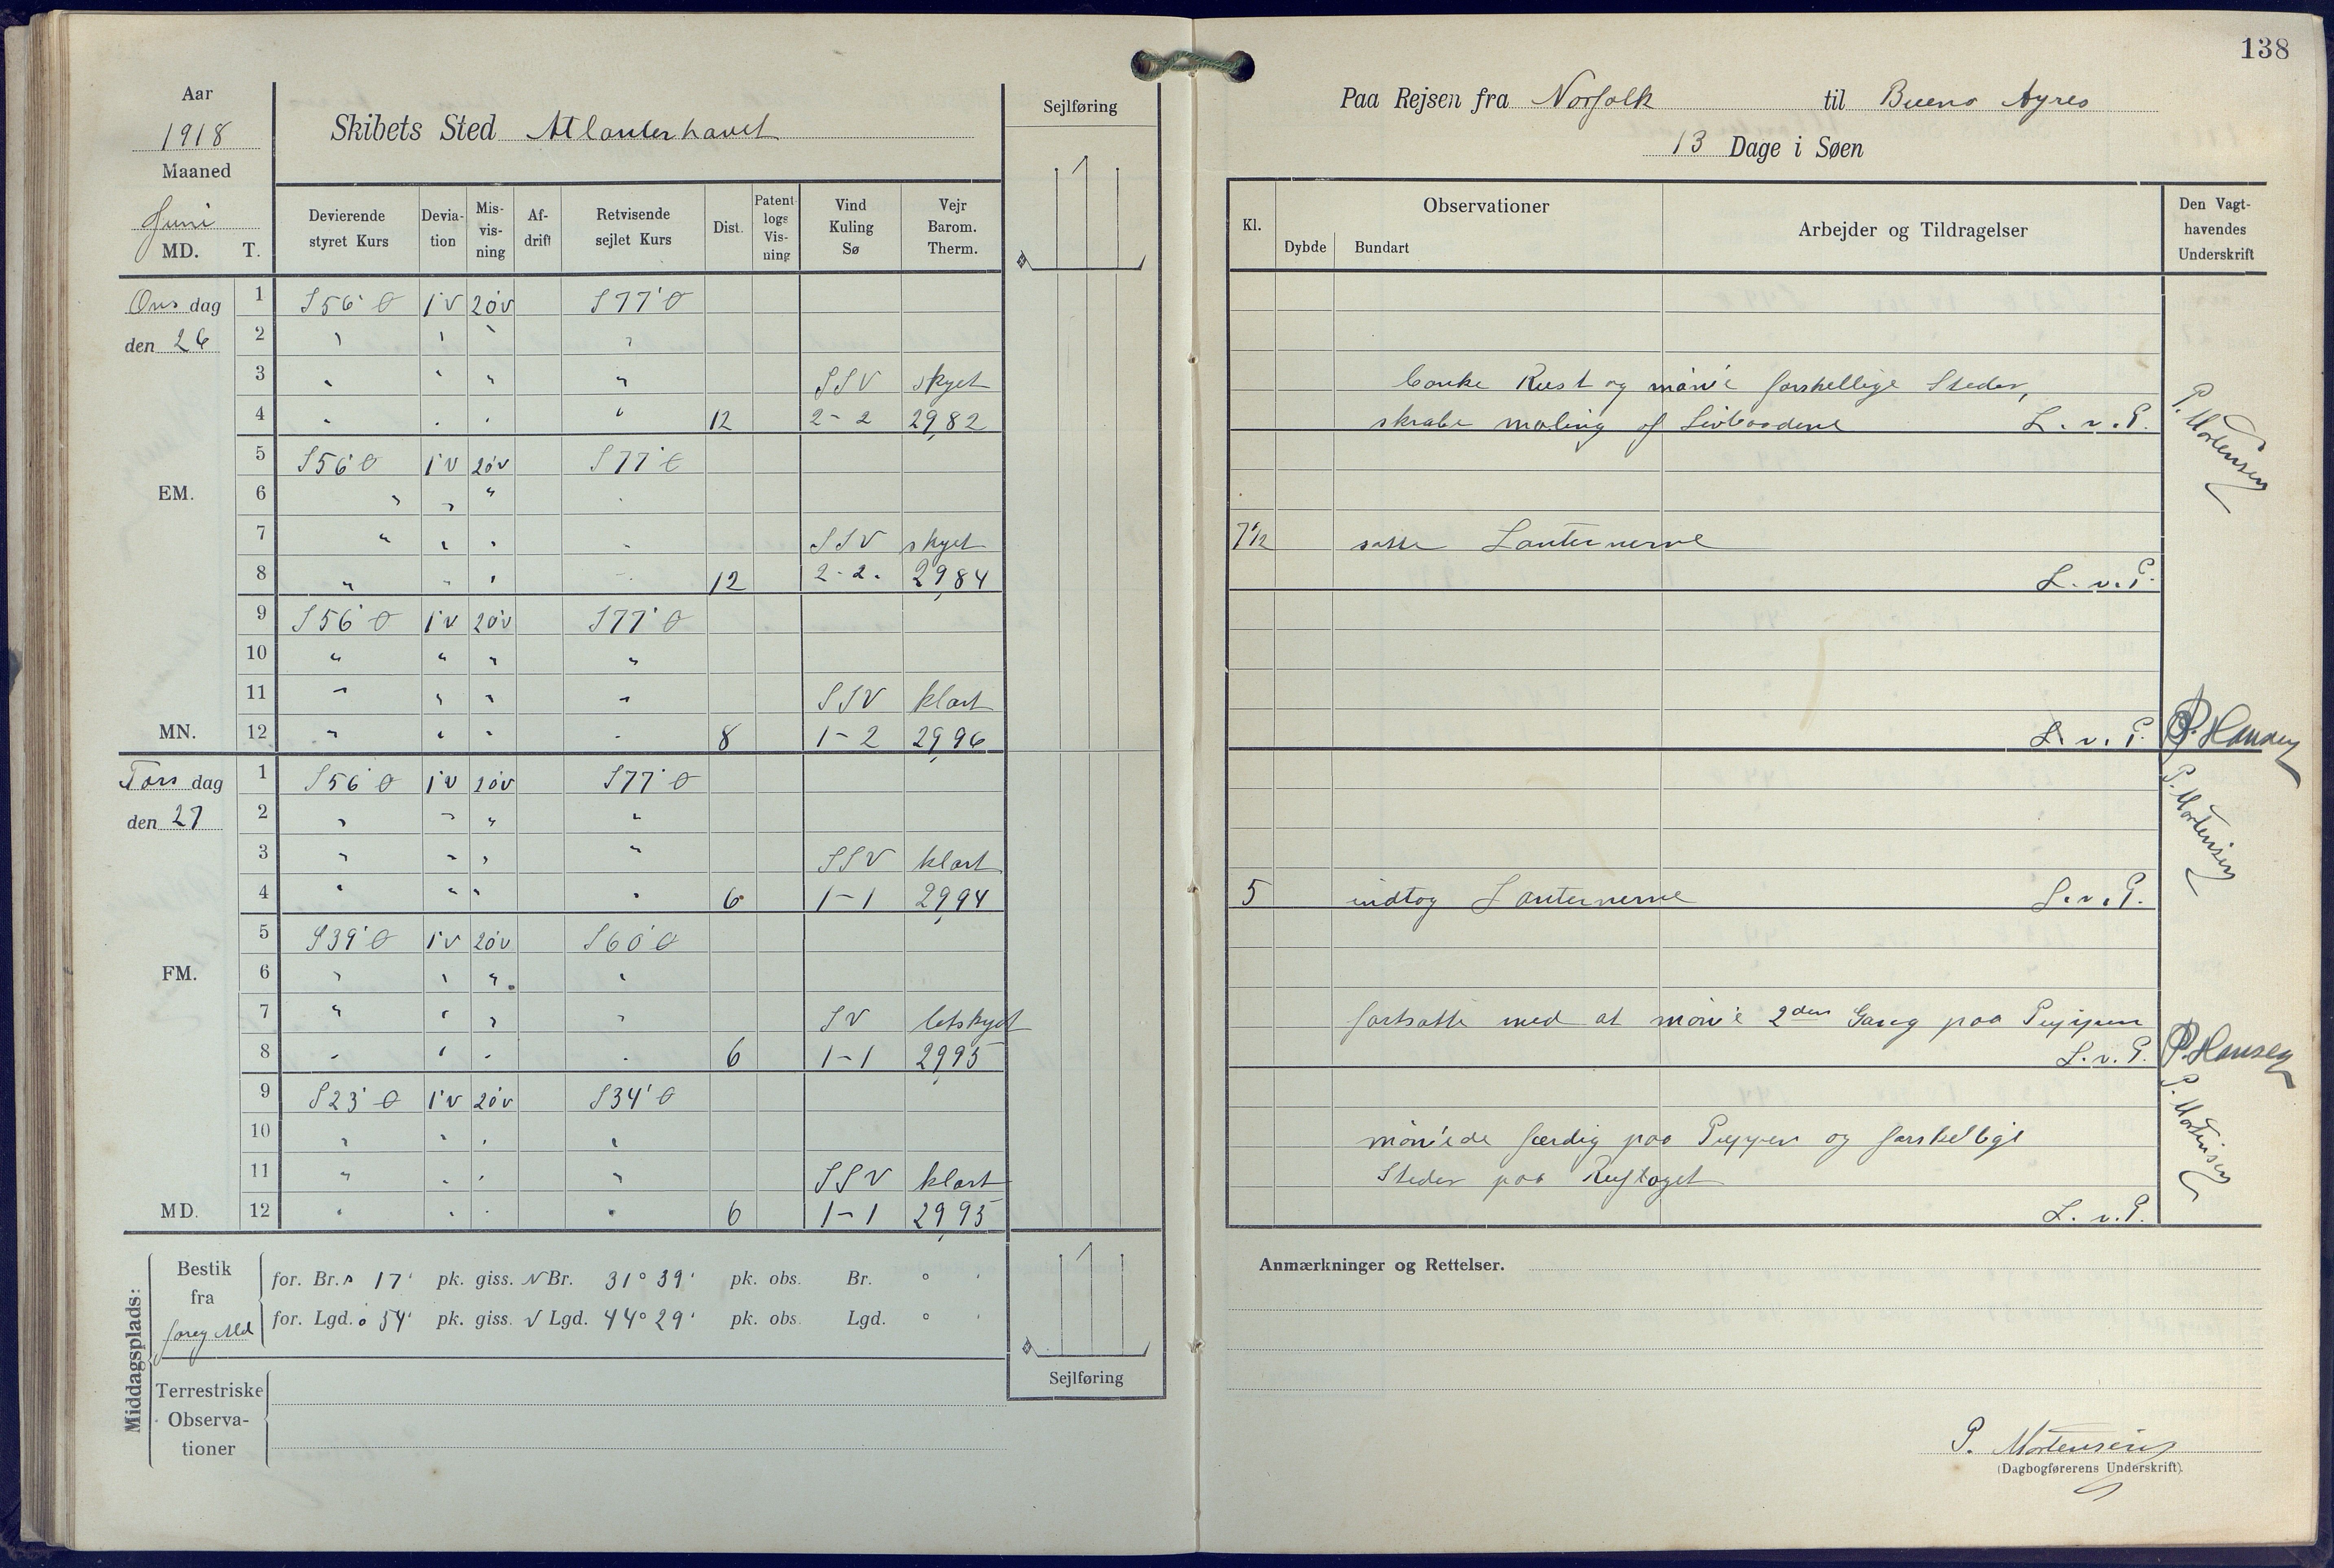 Aar
1918
Maaned
Juni
MD. T.
Skibets Sted Atlanterhavet
Sejlføring
Devierende styret Kurs
Deviation
Misvisning
Afdrift
Retvisende sejlet Kurs
Dist.
Patentlogs Visning
Vind Kuling Sø
Vejr Barom. Therm.
Onsdag 1 S56°O 1°V 20°V S77°O
den 26 2 " " " "
3 " " " " SSV skyet
4 " " " " 12 2-2 29,82
5 S56°O 1°V 20°V S77°O
EM. 6 " " " "
7 " " " " SSV skyet
8 " " " " 12 2-2. 29,84
9 S56°O 1°V 20°V S77°O
10 " " " "
11 " " " " SSV klart
MN. 12 " " " " 8 1-2 29,96
Torsdag 1 S56°O 1°V 20°V S77°O
den 27 2 " " " "
3 " " " " SSV klart
4 " " " " 6 1-1 29,94
5 S39°O 1°V 20°V S60°O
FM. 6 " " " "
7 " " " " SV letskyet
8 " " " " 6 1-1 29,95
9 S23°O 1°V 20°V S34°O
10 " " " "
11 " " " " SSV klart
MD. 12 " " " " 6 1-1 29,95
Middagsplads:
Bestik fra foreg Md
for. Br. s 17' pk. giss. N Br. 31° 39' pk. obs. Br. ° '
for. Lgd. o 54' pk. giss. V Lgd. 44° 29' pk. obs. Lgd. ° '
Terrestriske Observationer
Sejlføring
138
Paa Rejsen fra Norfolk til Bueno Ayres
13 Dage i Søen
Kl.
Observationer
Dybde Bundart
Arbejder og Tildragelser
Den Vagthavendes Underskrift
banke Rust og mønie forskellige Steder,
skrabe maling af Livbaadene L. v. P.
P. Mortensen
7 1/2 satte Lanternerne
L. v. P.
L. v. P. P. Hansen
P. Mortensen
5 indtog Lanternerne L. v. P.
fortsatte med at mønie 2den Gang paa Puppen
L. v. P. P. Hansen
P. Mortensen
møniede færdig paa Puppen og forskellige
Steder paa Ruftaget
L. v. P.
Anmærkninger og Rettelser.
P. Mortensen
(Dagbogførerens Underskrift).